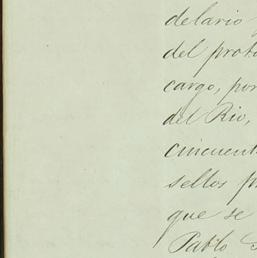 delario
del proto
cargo, por
del Rio,
cincuent
sellos p
que se
Pablo